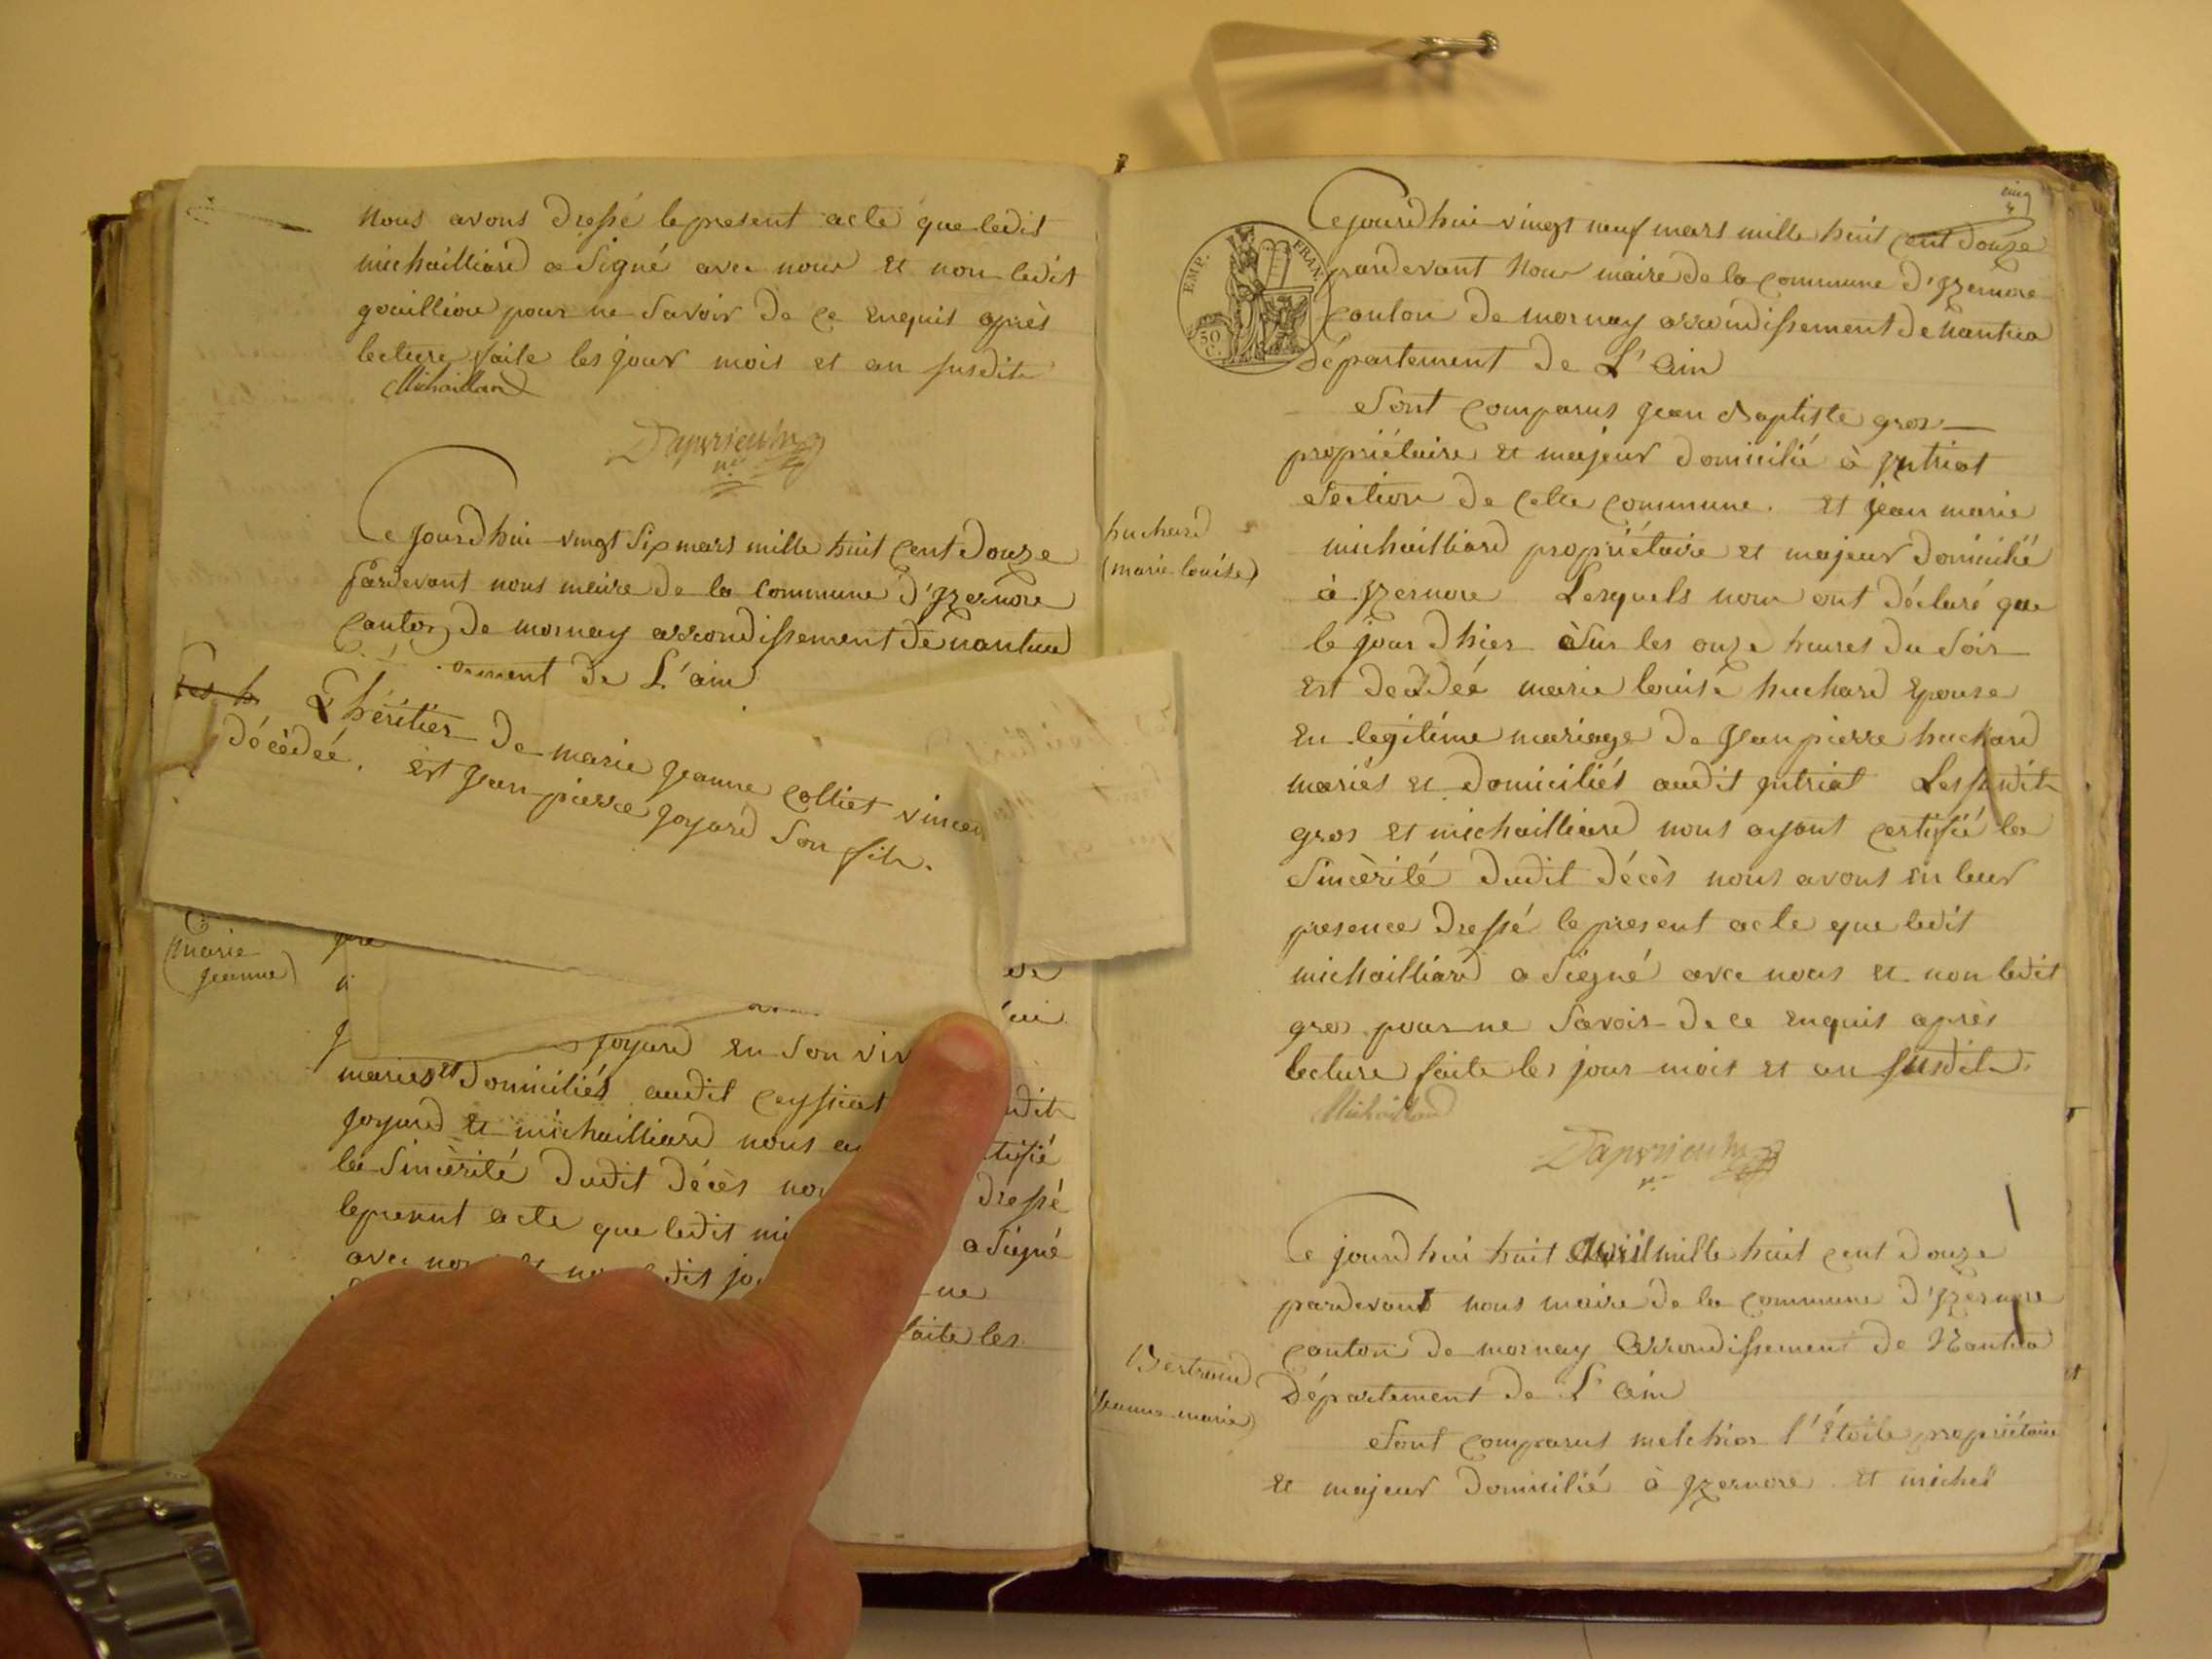 nous avons dressé le present acte que ledit
michailliard a signé avec nous et non ledit
gouilliou pour ne savoir de ce enquis après
lecture faite les jour mois et an susdits
Michaillard
Ce jourdhui vingt six mars mille huit cent douze
pardevant nous maire de la commune d'Izernore
canton de mornay arrondissement de nantua
ement de L'ain
L'héritier de marie jeanne colliet vincent
décédeé. est jean pierre joyard son fils.
(marie
jeanne)
joyard en son viv
mariés et domiciliés audit ceyssiat
joyard et michailliard nous a tifié
la sincèrité dudit décès nou dressé
le present acte que ledit mi a signé
avec nous et non ledit jo ne
faite les
cinq
EMP. FRAN.
50 C.
Ce jourdhui vingt neuf mars mille huit cent douze
pardevant nous maire de la commune d'Izernore
canton de mornay arrondissement de nantua
département de L'ain
Sont comparus jean Baptiste gros
propriétaire et majeur domicilié à Intriat
section de cette commune. et jean marie
huchard
(marie louise)
michailliard propriétaire et majeur domicilié
à Izernore Lesquels nous ont déclaré que
le jour dhier sur les onze heures du soir
est decedeé marie louise huchard epouse
en legitime mariage de jean pierre huchard
mariés et domiciliés audit intriat Les susdits
gros et michailliard nous ayant certifié la
sincèrité dudit décès nous avons en leur
presence dressé le present acte que ledit
michailliard a signé avec nous et non ledit
gros pour ne savoir de ce enquis après
lecture faite les jour mois et an susdits.
Michaillard
Ce jourdhui huit avril mille huit cent douze
pardevant nous maire de la commune d'Izernore
canton de mornay arrondissement de Nantua
Bertrand
(jeanne marie)
Département de L'ain
Sont comparus melchior l'Étoile propriétaire
et majeur domicilié à Izernore et michel